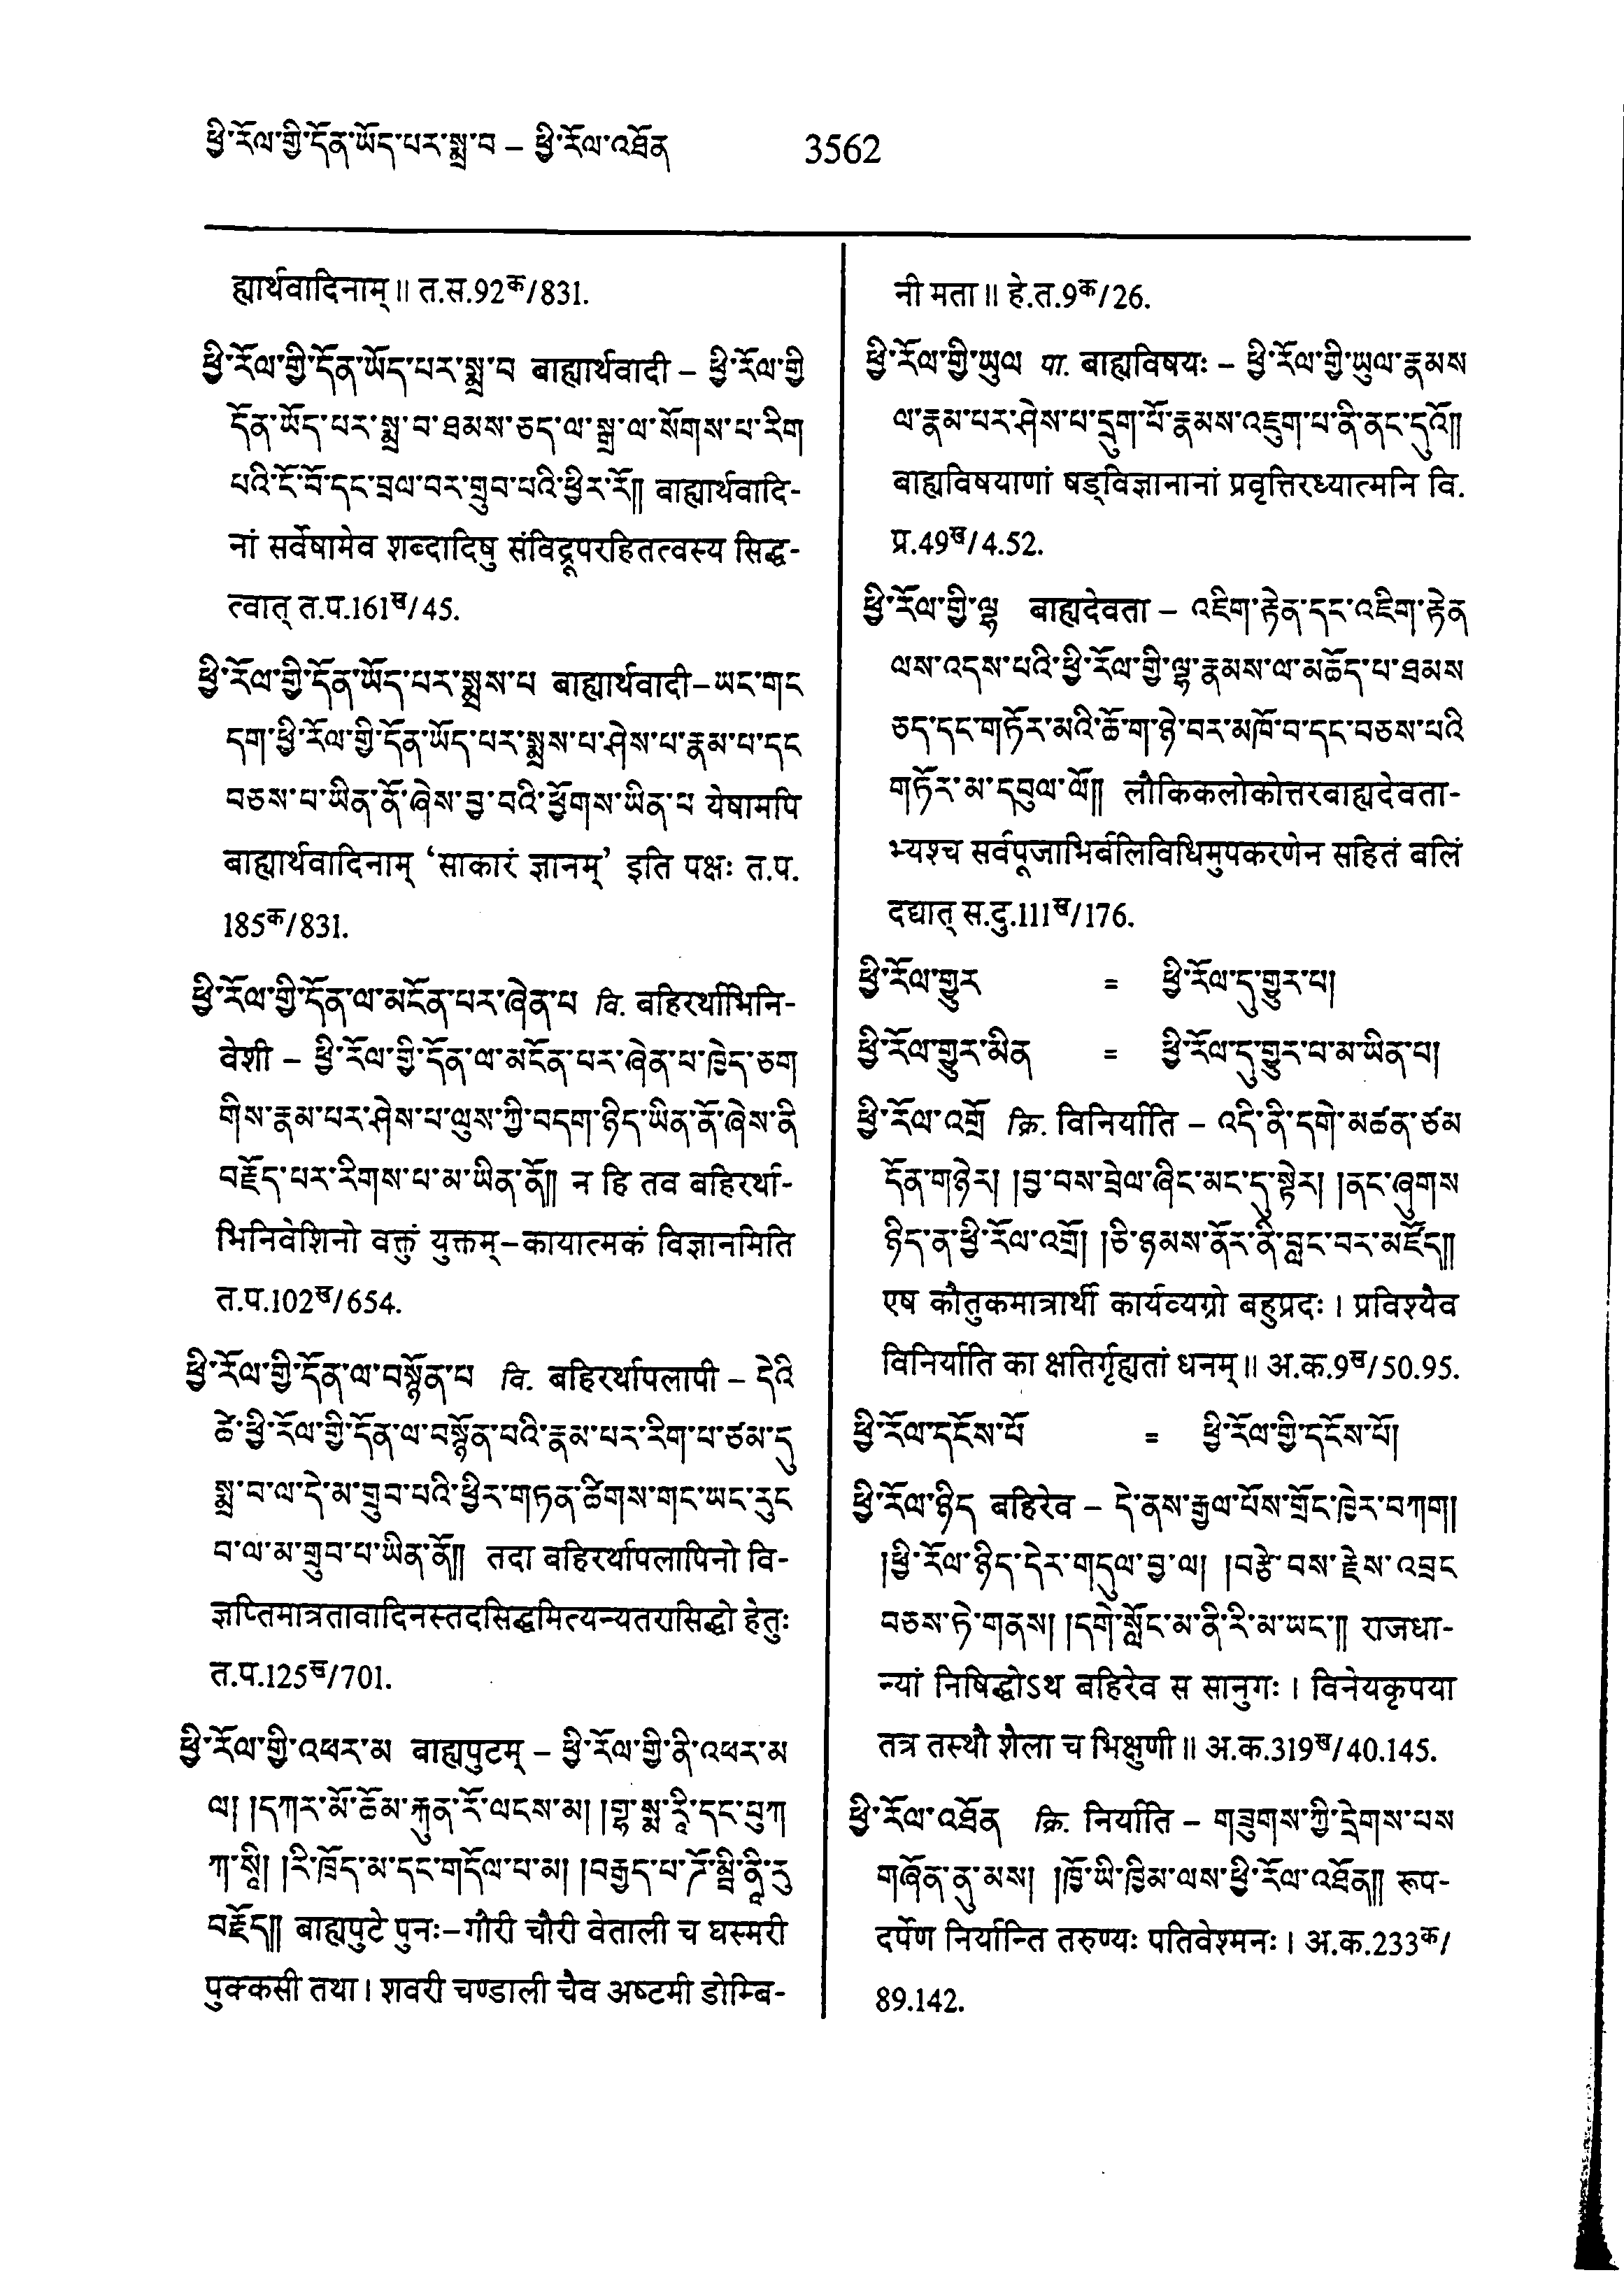 ཕྱི་རོལ་གྱི་དོན་ཡོད་པར་སྨྲ་བ – ཕྱི་རོལ་འཐོན
3562
ह्यार्थवादिनाम्॥ त.स.92क/831.
ཕྱི་རོལ་གྱི་དོན་ཡོད་པར་སྨྲ་བ बाह्यार्थवादी – ཕྱི་རོལ་གྱི
དོན་ཡོད་པར་སྨྲ་བ་ཐམས་ཅད་ལ་སྒྲ་ལ་སོགས་པ་རིག
པའི་ངོ་བོ་དང་བྲལ་བར་གྲུབ་པའི་ཕྱིར་རོ༎ बाह्यार्थवादि-
नां सर्वेषामेव शब्दादिषु संविद्रूपरहितत्वस्य सिद्ध-
त्वात् त.प.161ख/45.
ཕྱི་རོལ་གྱི་དོན་ཡོད་པར་སྨྲས་པ बाह्यार्थवादी–ཡང་གང
དག་ཕྱི་རོལ་གྱི་དོན་ཡོད་པར་སྨྲས་པ་ཤེས་པ་རྣམ་པ་དང
བཅས་པ་ཡིན་ནོ་ཞེས་བྱ་བའི་ཕྱོགས་ཡིན་པ येषामपि
बाह्यार्थवादिनाम् ‘साकारं ज्ञानम्’ इति पक्षः त.प.
185क/831.
ཕྱི་རོལ་གྱི་དོན་ལ་མངོན་པར་ཞེན་པ वि. बहिरर्थाभिनि-
वेशी – ཕྱི་རོལ་གྱི་དོན་ལ་མངོན་པར་ཞེན་པ་ཁྱེད་ཅག
གིས་རྣམ་པར་ཤེས་པ་ལུས་ཀྱི་བདག་ཉིད་ཡིན་ནོ་ཞེས་ནི
བརྗོད་པར་རིགས་པ་མ་ཡིན་ནོ༎ न हि तव बहिरर्था-
भिनिवेशिनो वक्तुं युक्तम्–कायात्मकं विज्ञानमिति
त.प.102ख/654.
ཕྱི་རོལ་གྱི་དོན་ལ་བསྙོན་པ वि. बहिरर्थापलापी – དེའི
ཚེ་ཕྱི་རོལ་གྱི་དོན་ལ་བསྙོན་པའི་རྣམ་པར་རིག་པ་ཙམ་དུ
སྨྲ་བ་ལ་དེ་མ་གྲུབ་པའི་ཕྱིར་གཏན་ཚིགས་གང་ཡང་རུང
བ་ལ་མ་གྲུབ་པ་ཡིན་ནོ༎ तदा बहिरर्थापलापिनो वि-
ज्ञप्तिमात्रतावादिनस्तदसिद्धमित्यन्यतरासिद्धो हेतुः
त.प.125ख/701.
ཕྱི་རོལ་གྱི་འཕར་མ बाह्यपुटम् – ཕྱི་རོལ་གྱི་ནི་འཕར་མ
ལ། །དཀར་མོ་ཆོམ་རྐུན་རོ་ལངས་མ། །གྷ་སྨ་རཱི་དང་པུཀ
ཀ་སཱི། །རི་ཁྲོད་མ་དང་གདོལ་པ་མ། །བརྒྱད་པ་ཌོ་མྦི་ནཱི་རུ
བརྗོད༎ बाह्यपुटे पुनः–गौरी चौरी वेताली च घस्मरी
पुक्कसी तथा। शवरी चण्डाली चैव अष्टमी डोम्बि-
नी मता॥ हे.त.9क/26.
ཕྱི་རོལ་གྱི་ཡུལ पा. बाह्यविषयः – ཕྱི་རོལ་གྱི་ཡུལ་རྣམས
ལ་རྣམ་པར་ཤེས་པ་དྲུག་པོ་རྣམས་འཇུག་པ་ནི་ནང་དུའོ༎
बाह्यविषयाणां षड्विज्ञानानां प्रवृत्तिरध्यात्मनि वि.
प्र.49ख/4.52.
ཕྱི་རོལ་གྱི་ལྷ बाह्यदेवता – འཇིག་རྟེན་དང་འཇིག་རྟེན
ལས་འདས་པའི་ཕྱི་རོལ་གྱི་ལྷ་རྣམས་ལ་མཆོད་པ་ཐམས
ཅད་དང་གཏོར་མའི་ཆོ་ག་ཉེ་བར་མཁོ་བ་དང་བཅས་པའི
གཏོར་མ་དབུལ་ལོ༎ लौकिकलोकोत्तरबाह्यदेवता-
भ्यश्च सर्वपूजाभिर्बलिविधिमुपकरणेन सहितं बलिं
दद्यात् स.दु.111ख/176.
ཕྱི་རོལ་གྱུར = ཕྱི་རོལ་དུ་གྱུར་པ།
ཕྱི་རོལ་གྱུར་མིན = ཕྱི་རོལ་དུ་གྱུར་པ་མ་ཡིན་པ།
ཕྱི་རོལ་འགྲོ क्रि. विनिर्याति – འདི་ནི་དགེ་མཚན་ཙམ
དོན་གཉེར། །བྱ་བས་བྲེལ་ཞིང་མང་དུ་སྟེར། །ནང་ཞུགས
ཉིད་ན་ཕྱི་རོལ་འགྲོ། །ཅི་ཉམས་ནོར་ནི་བླང་བར་མཛོད༎
एष कौतुकमात्रार्थी कार्यव्यग्रो बहुप्रदः। प्रविश्यैव
विनिर्याति का क्षतिर्गृह्यतां धनम्॥ अ.क.9ख/50.95.
ཕྱི་རོལ་དངོས་པོ = ཕྱི་རོལ་གྱི་དངོས་པོ།
ཕྱི་རོལ་ཉིད बहिरेव – དེ་ནས་རྒྱལ་པོས་གྲོང་ཁྱེར་བཀག།
།ཕྱི་རོལ་ཉིད་དེར་གདུལ་བྱ་ལ། །བརྩེ་བས་རྗེས་འབྲང
བཅས་ཏེ་གནས། །དགེ་སློང་མ་ནི་རི་མ་ཡང་༎ राजधा-
न्यां निषिद्धोऽथ बहिरेव स सानुगः। विनेयकृपया
तत्र तस्थौ शैला च भिक्षुणी॥ अ.क.319ख/40.145.
ཕྱི་རོལ་འཐོན क्रि. निर्याति – གཟུགས་ཀྱི་དྲེགས་པས
གཞོན་ནུ་མས། །ཁྱོ་ཡི་ཁྱིམ་ལས་ཕྱི་རོལ་འཐོན༎ रूप-
दर्पेण निर्यान्ति तरुण्यः पतिवेश्मनः। अ.क.233क/
89.142.